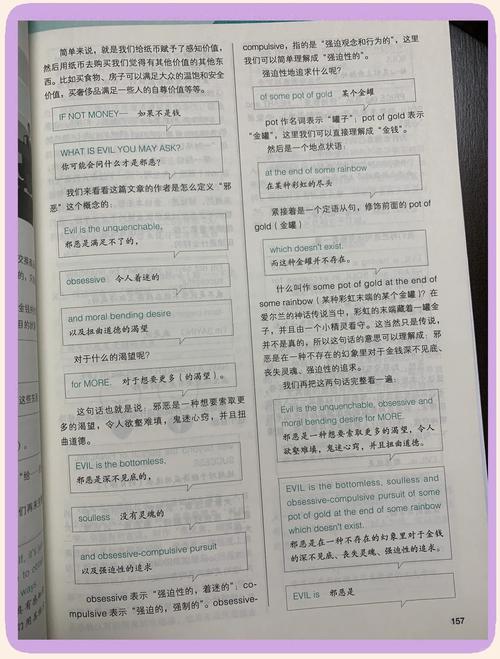 简单来说，就是我们给纸币赋予了感知价值，
然后用纸币去购买我们觉得有其他价值的其他东
西。比如买食物、房子可以满足大众的温饱和安全
价值，买奢侈品满足一些人的自尊价值等等。
IF NOT MONEY— 如果不是钱
WHAT IS EVIL YOU MAY ASK?
你可能会问什么才是邪恶？
我们来看看这篇文章的作者是怎么定义“邪
恶”这个概念的：
Evil is the unquenchable,
邪恶是满足不了的，
obsessive 令人着迷的
and moral bending desire
以及扭曲道德的渴望
对于什么的渴望呢？
for MORE. 对于想要更多（的渴望）。
这句话也就是说：邪恶是一种想要索取更
多的渴望，令人欲壑难填，鬼迷心窍，并且扭
曲道德。
EVIL is the bottomless,
邪恶是深不见底的，
soulless 没有灵魂的
and obsessive-compulsive pursuit
以及强迫性的追求
obsessive 表示“强迫性的，着迷的”；com-
pulsive 表示“强迫的，强制的”。obsessive-
compulsive，指的是“强迫观念和行为的”，这里
我们可以简单理解成“强迫性的”。
强迫性地追求什么呢？
of some pot of gold 某个金罐
pot 作名词表示“罐子”，pot of gold 表示
“金罐”，这里我们可以直接理解成“金钱”。
然后是一个地点状语：
at the end of some rainbow
在某种彩虹的尽头
紧接着是一个定语从句，修饰前面的 pot of
gold（金罐）
which doesn't exist.
而这种金罐并不存在。
什么叫作 some pot of gold at the end of
some rainbow（某种彩虹末端的某个金罐）？在
爱尔兰的神话传说当中，彩虹的末端藏着一罐金
子，并且由一个小精灵看守。这当然只是传说，
并不是真的，所以这句话的意思可以理解成：邪
恶是在一种不存在的幻象里对于金钱深不见底、
丧失灵魂、强迫性的追求。
我们再把这两句话完整看一遍：
Evil is the unquenchable, obsessive and
moral bending desire for MORE.
邪恶是一种想要索取更多的渴望，令人
欲壑难填，鬼迷心窍，并且扭曲道德。
EVIL is the bottomless, soulless and
obsessive-compulsive pursuit of some
pot of gold at the end of some rainbow
which doesn't exist.
邪恶是在一种不存在的幻象里对于金钱
的深不见底、丧失灵魂、强迫性的追求。
EVIL is 邪恶是
157